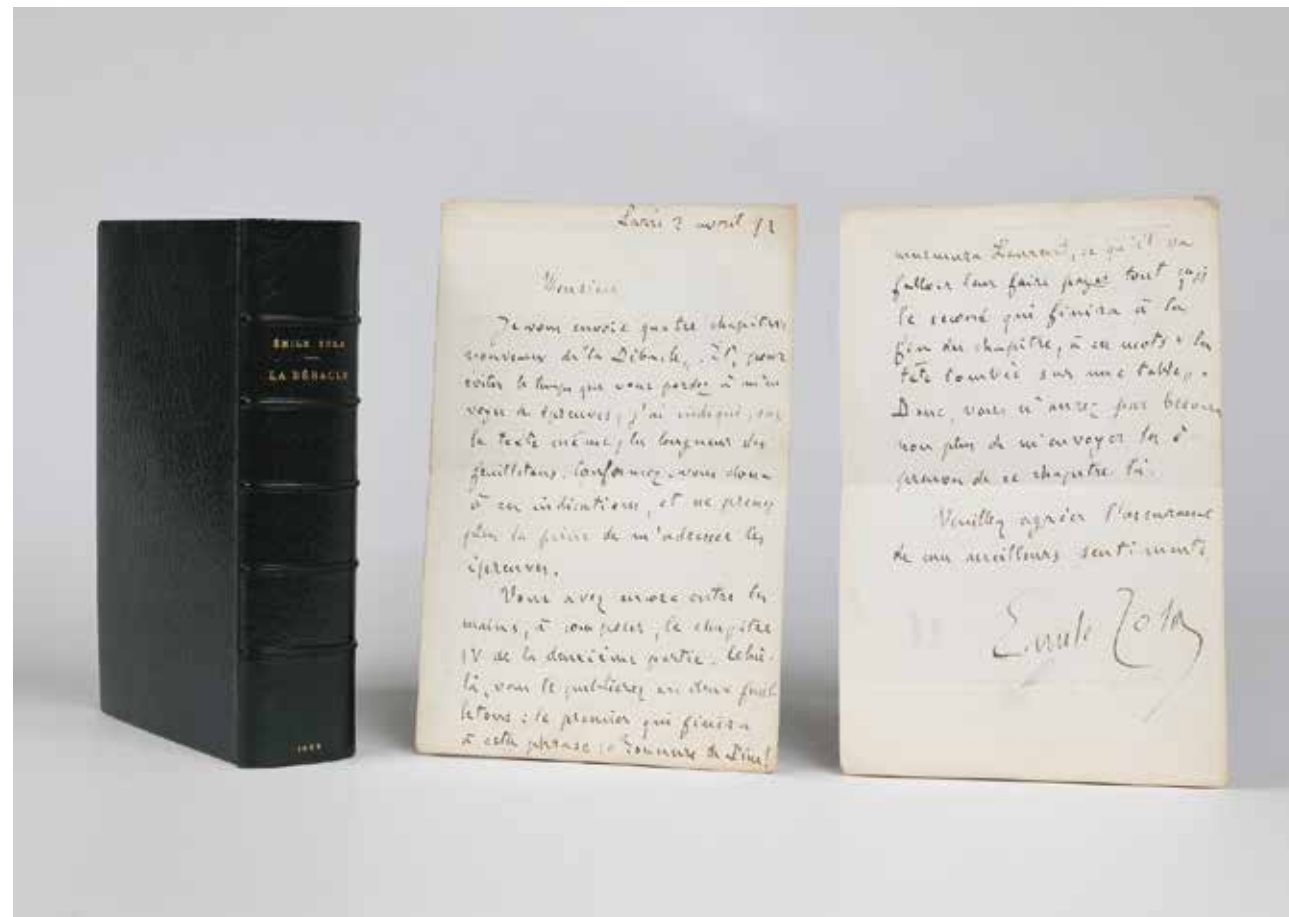 ÉMILE ZOLA
LA DÉBACLE
1892
Paris 2 avril 92
Monsieur
Je vous envoie quatre chapitres
nouveaux de la Débâcle. Et, pour
éviter le temps que vous perdez à m'en
voyer des épreuves, j'ai indiqué, sur
le texte même, la longueur des
feuilletons. Conformez-vous donc
à ces indications, et ne prenez
plus la peine de m'adresser les
épreuves.
Vous avez encore entre les
mains, à composer, le chapitre
IV de la deuxième partie. Celui-
là, vous le publierez en deux feuil
letons : le premier qui finira
à cette phrase : « Tonnerre de Dieu!
murmura Laurent, ce qu'il va
falloir leur faire payer tout ça »;
le second qui finira à la
fin du chapitre, à ces mots « la
tête tombée sur une table ».
Donc, vous n'aurez pas besoin
non plus de m'envoyer les é
preuves de ce chapitre là.
Veuillez agréer l'assurance
de mes meilleurs sentiments
Emile Zola